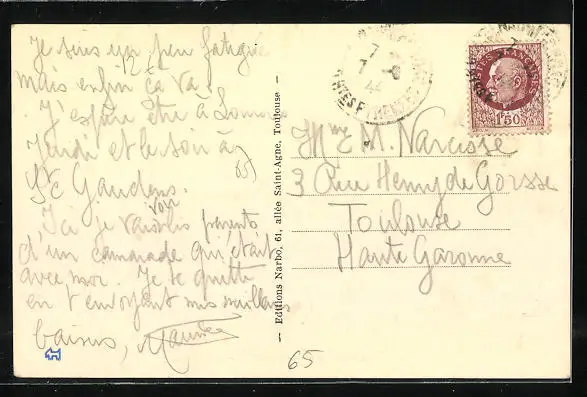 Je suis un peu fatigué
12/
mais enfin ça va.
J'espère être à
Jeudi et le soir à
65)
St Gaudens.
voir
Ici je vais les parents
d'un camarade qui était
avec moi. Je te quitte
en t'envoyant mes meilleurs
baisers, Maurice
— Editions Narbo, 61, allée Saint-Agne, Toulouse —
POSTES FRANÇAISES
1F50
Mme M. Narcisse
3 Rue Henry de Gorsse
Toulouse
Haute Garonne
65